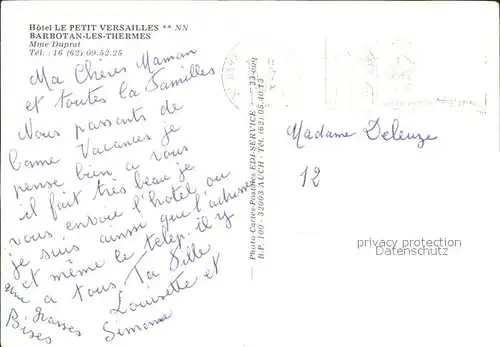 Hôtel LE PETIT VERSAILLES ** NN
BARBOTAN-LES-THERMES
Mme Duprat
Tél. : 16 (62) 09.52.25
Ma Chères Maman
et toutes la familles
Nous passants de
bonne Vacances je
pense bien a vous
il fait très beau je
vous envoie l'hotel ou
je suis ainsi que l'adresse
et même le telep. il y
a tous Ta fille
Louisette et
Simone
avec grosses
Bises
Photo Cartes-Postales EDI-SERVICE
B.P. 100 - 32003 AUCH - Tél. (62) 05.40.13
Madame Deleuze
12
privacy protection
Datenschutz